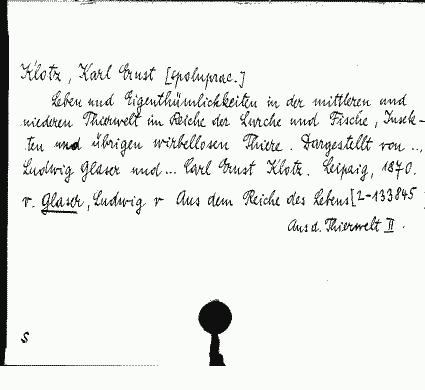 Klotz, Karl Ernst [spoluprac.]
Leben und Eigenthümlichkeiten in der mittleren und
niederen Thierwelt im Reiche der Lurche und Fische, Insek-
ten und übrigen wirbellosen Thiere. Dargestellt von ..,
Ludwig Glaser und ... Carl Ernst Klotz. Leipzig, 1870.
v. Glaser, Ludwig v Aus dem Reiche des Lebens [2-133845
Aus d. Thierwelt II.
S